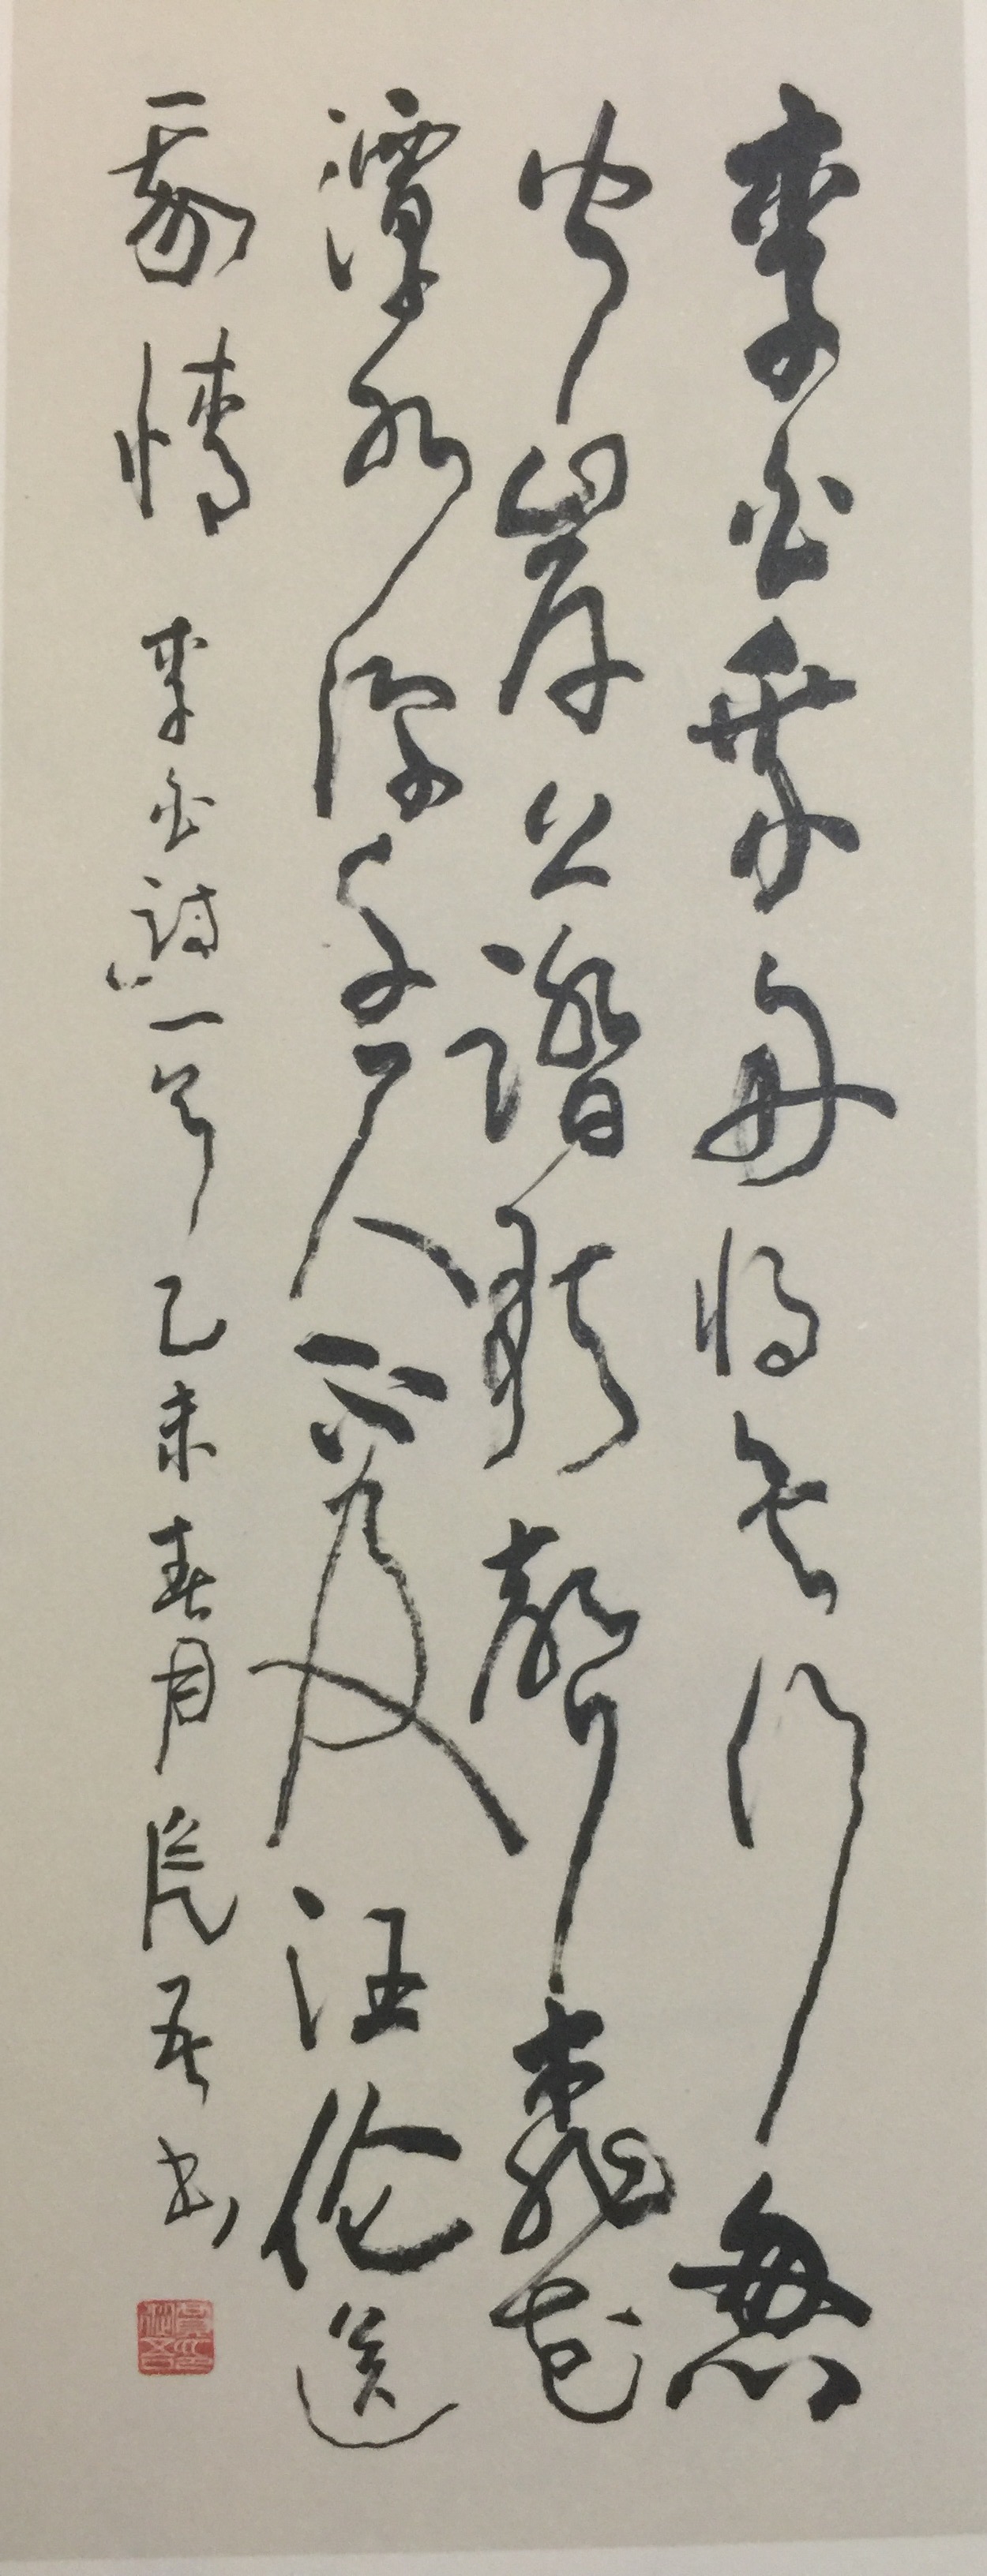 李白乘舟将欲行忽
闻岸上踏歌声桃花
潭水深千尺不及汪伦送
我情 李白诗一首 乙未春月 书